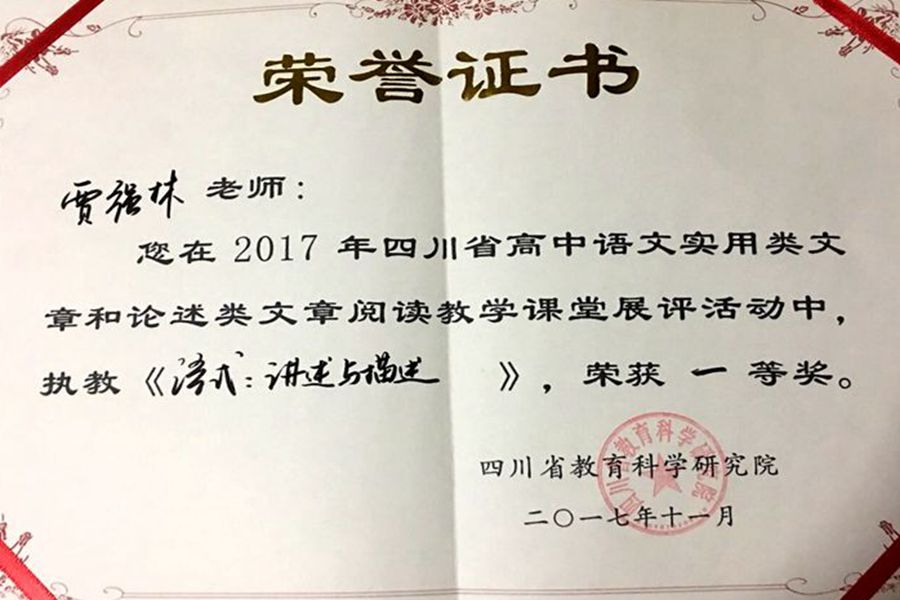 荣誉证书
贾强林 老师:
您在 2017 年四川省高中语文实用类文
章和论述类文章阅读教学课堂展评活动中，
执教《语式:讲述与描述》，荣获 一 等奖。
四川省教育科学研究院
二〇一七年十一月
四川省教育科学研究院